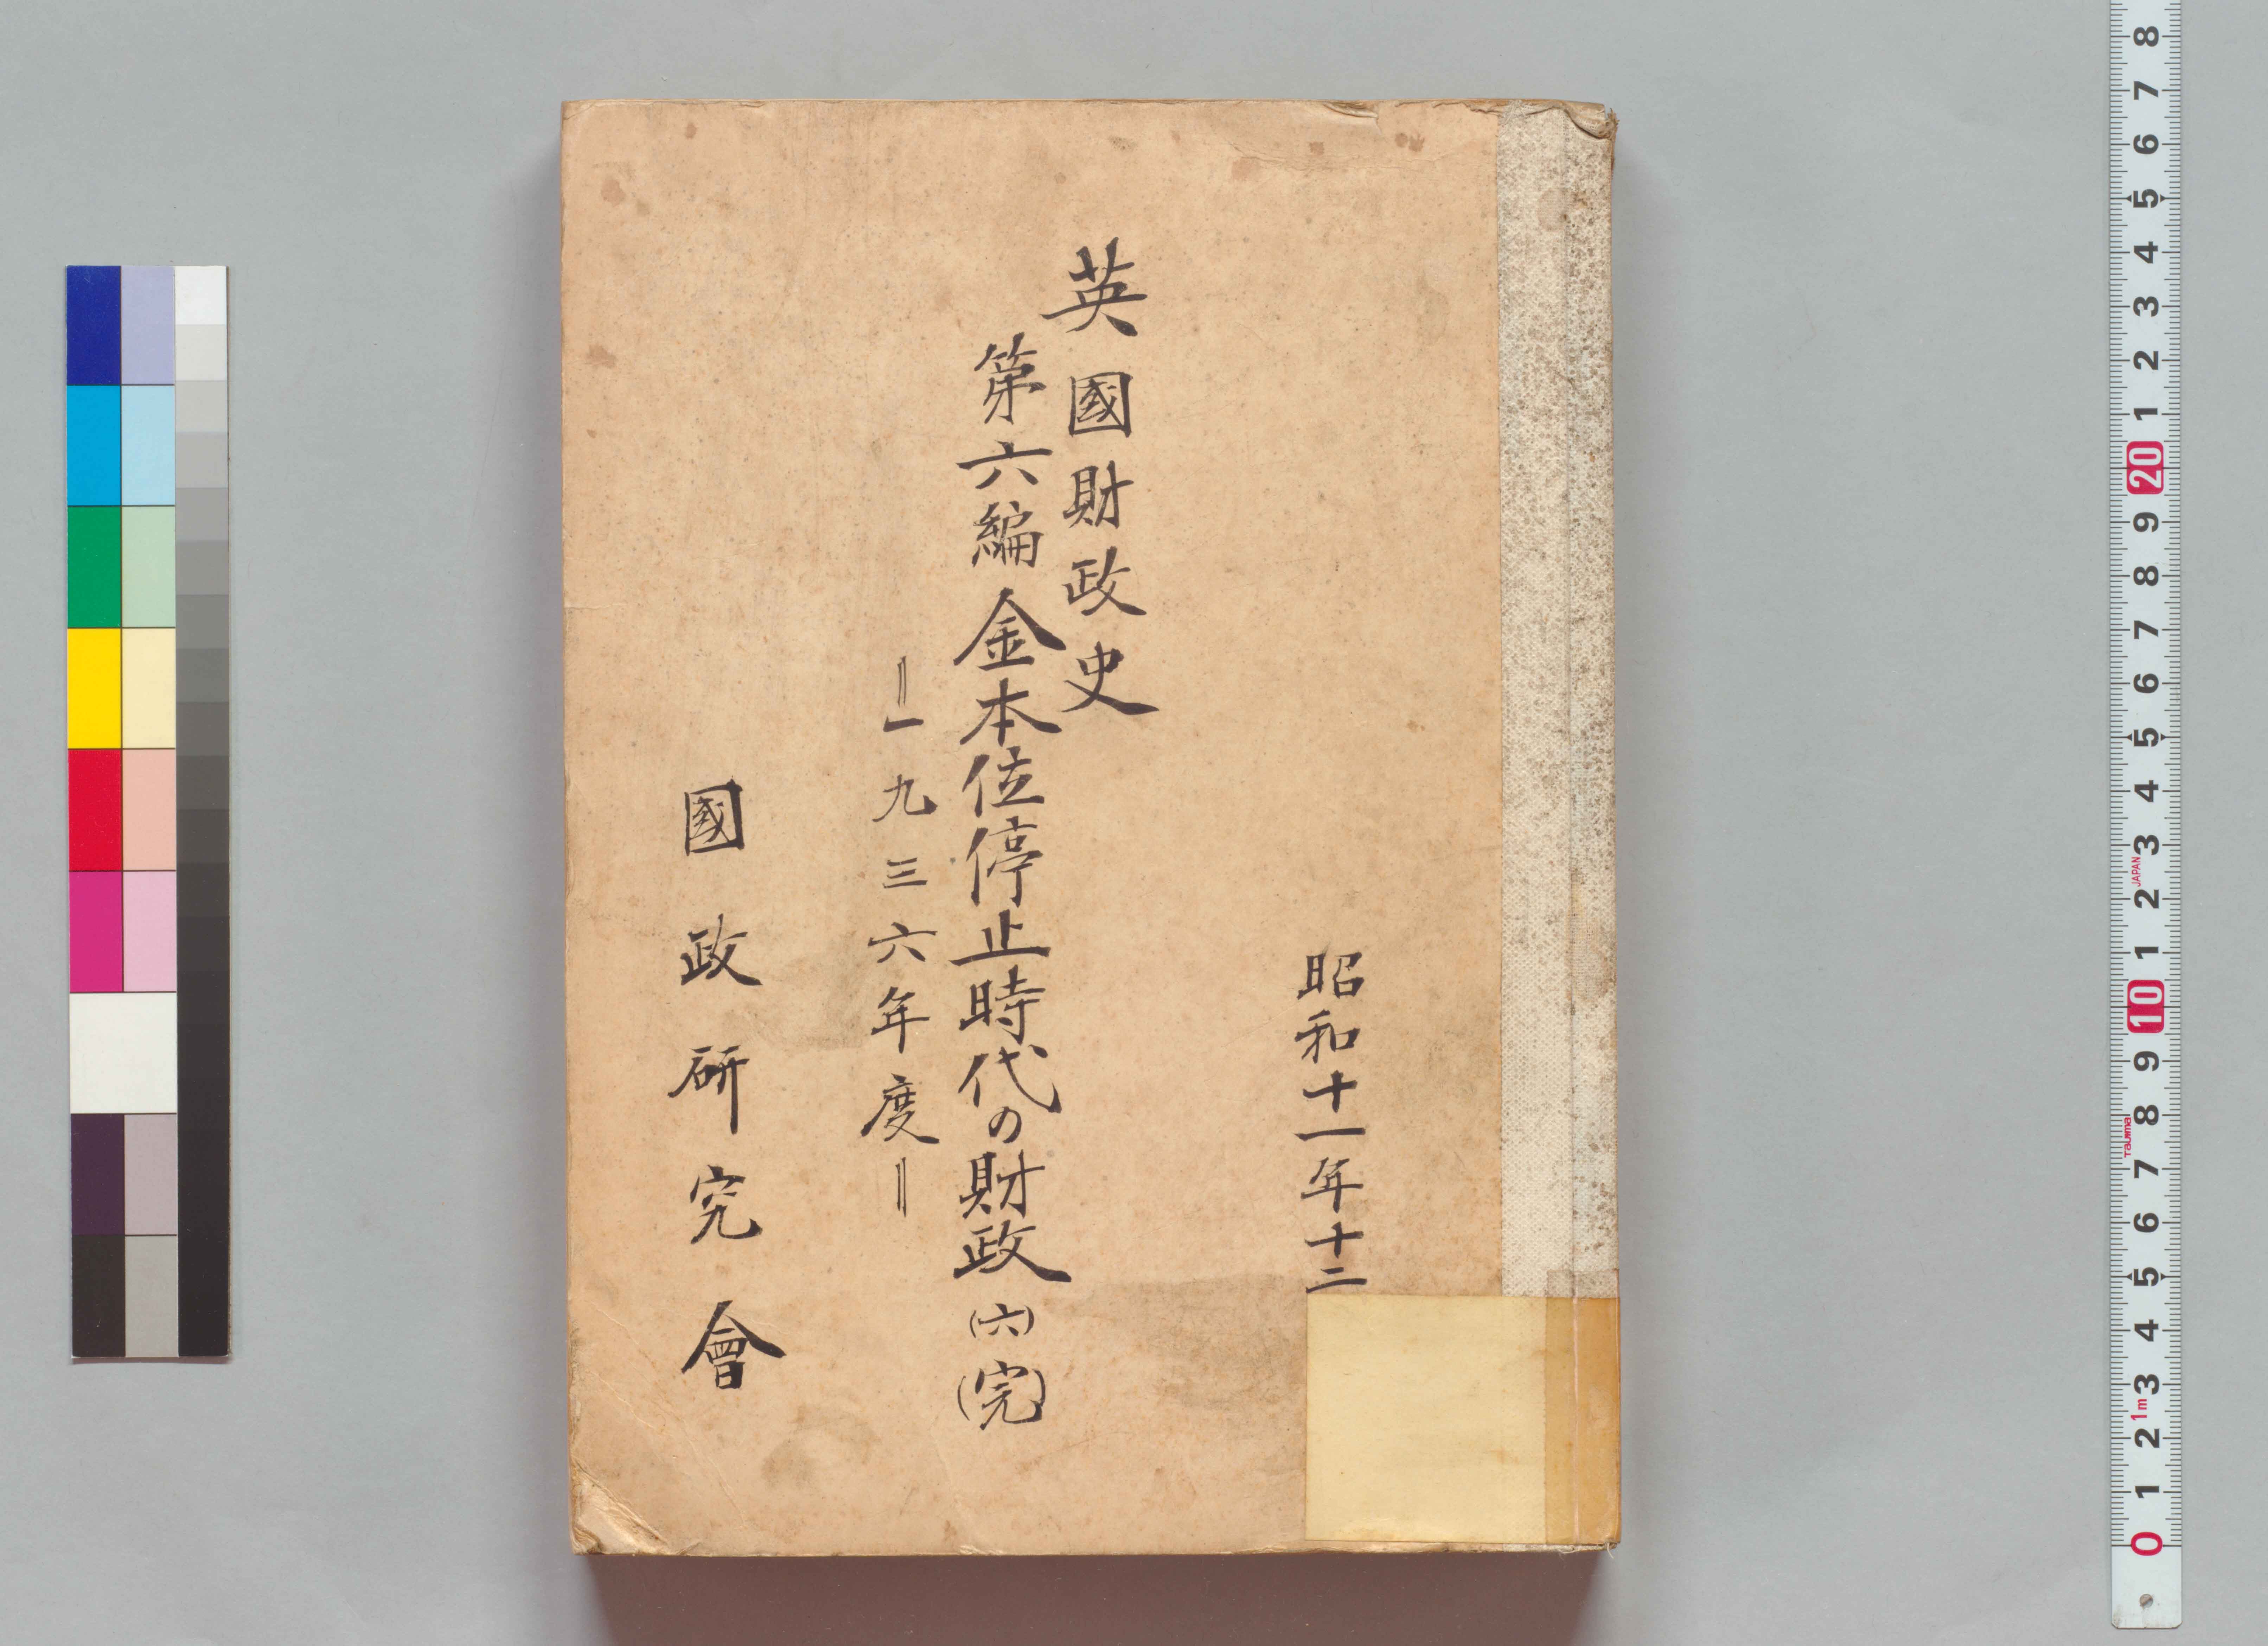 昭和十一年十二
英國財政史
第六編 金本位停止時代の財政(六)(完)
=一九三六年度=
國政研究會
8 7 6 5 4 3 2 1 20 9 8 7 6 5 4 3 2 1 10 9 8 7 6 5 4 3 2 1 0
JAPAN
Tajima
1m